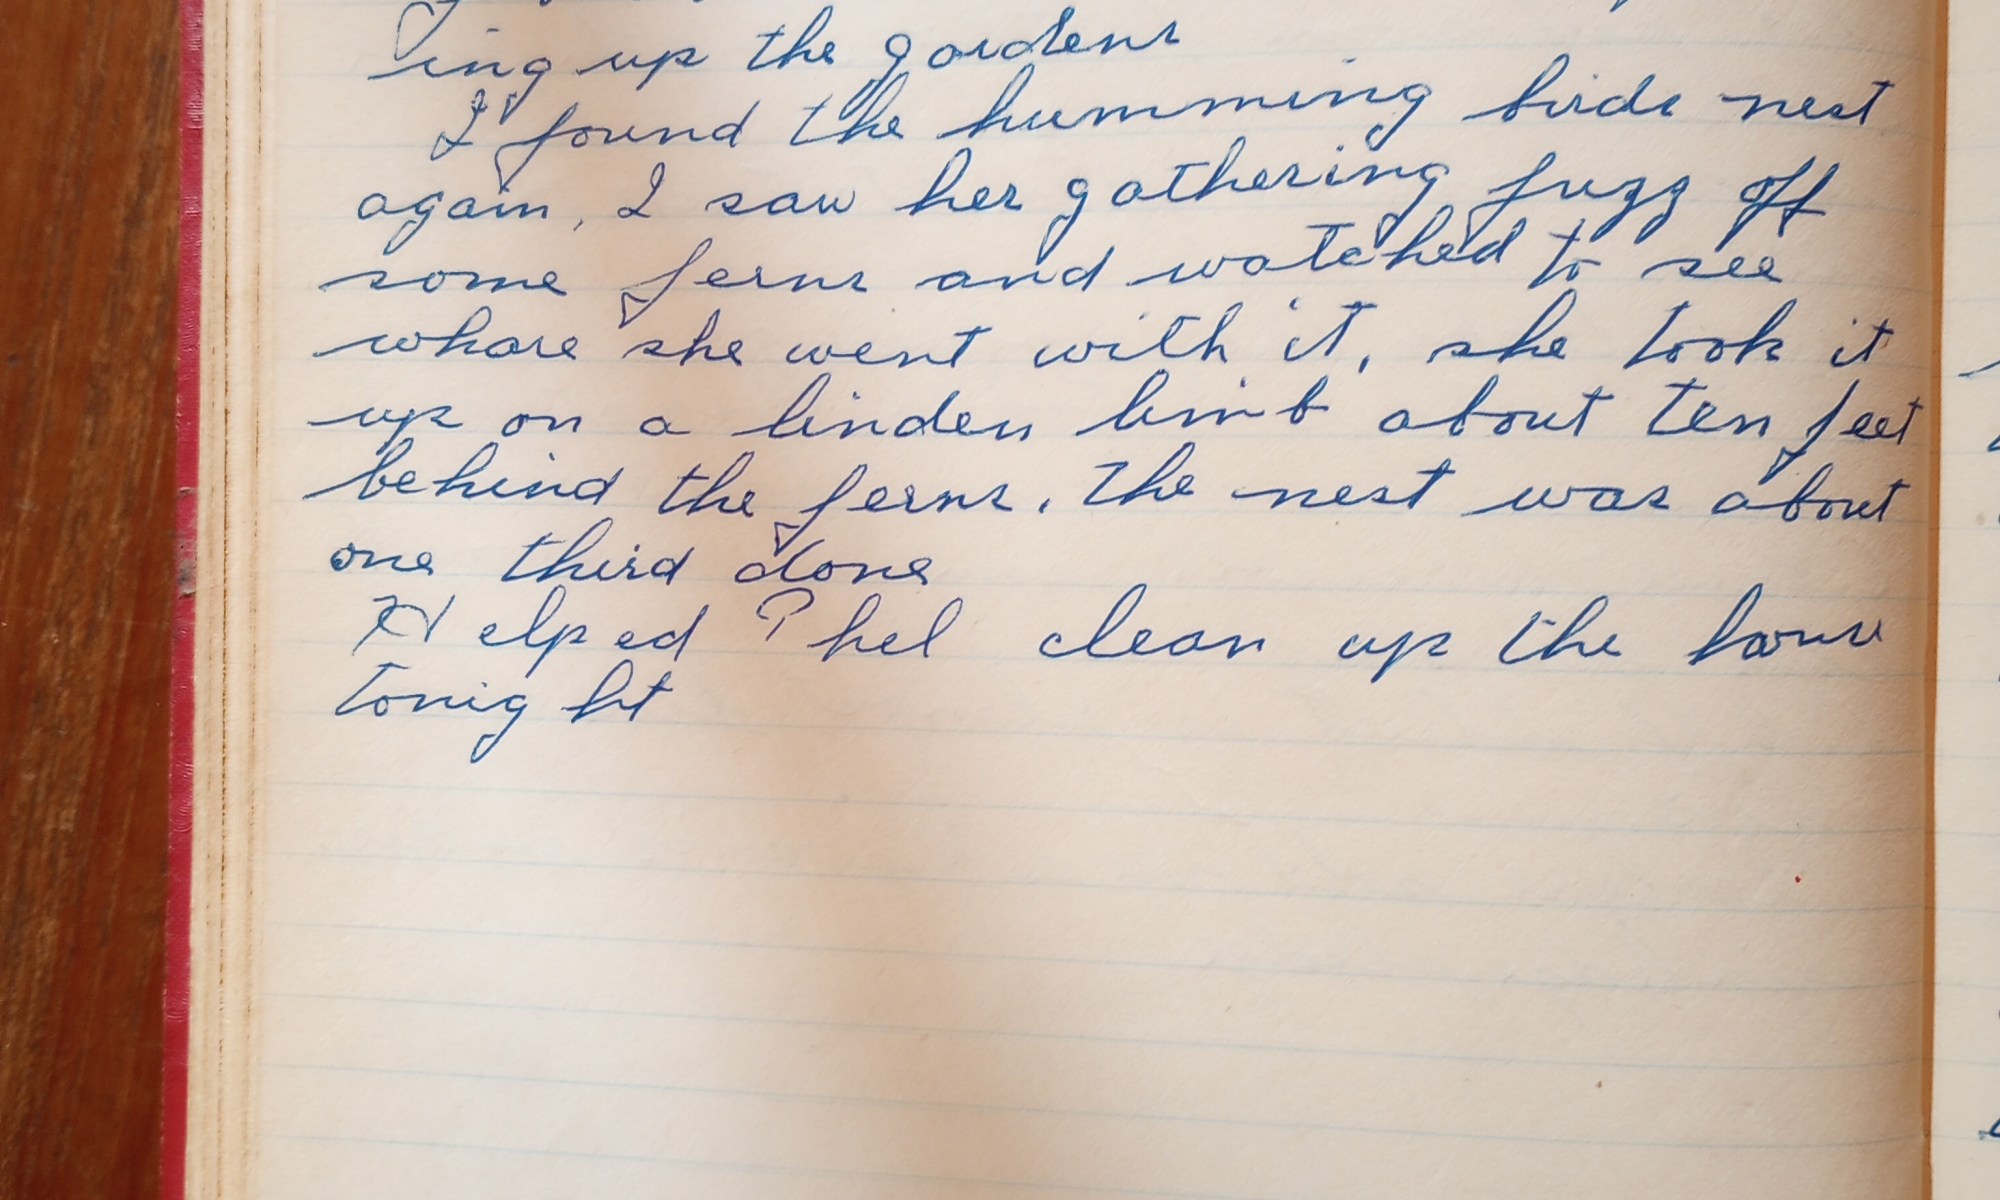 ing up the gardens
I found the humming birds nest
again, I saw her gathering fuzz off
some ferns and watched to see
whare she went with it, she took it
up on a linden limb about ten feet
behind the ferns. the nest was about
one third done
Helped Phel clean up the house
tonight